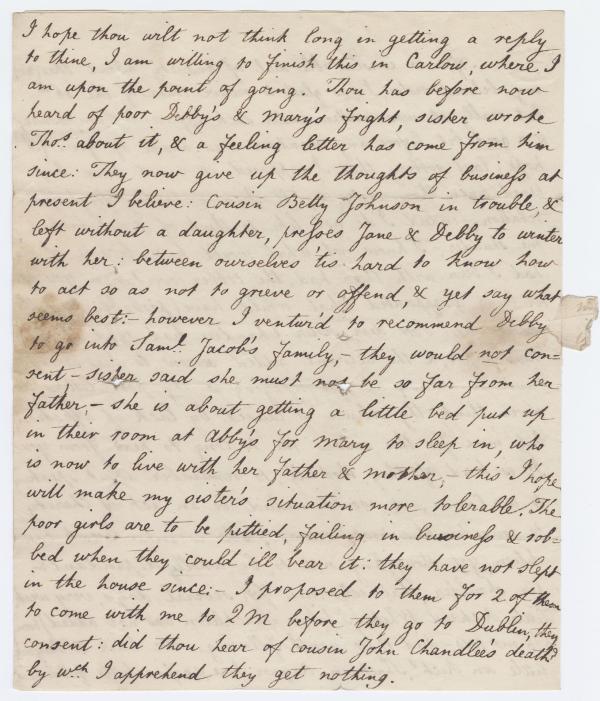 I hope thou wilt not think long in getting a reply
to thine, I am willing to finish this in Carlow, where I
am upon the point of going. Thou has before now
heard of poor Debby's & Mary's fright, sister wrote
Thos. about it, & a feeling letter has come from him
since: They now give up the thoughts of business at
present I believe: Cousin Betty Johnson in trouble, &
left without a daughter, presses Jane & Debby to winter
with her: between ourselves 'tis hard to know how
to act so as not to grieve or offend, & yet say what
seems best:- however I ventur'd to recommend Debby
to go into Saml. Jacob's family,- they would not con=
sent,- sister said she must not be so far from her
father,- she is about getting a little bed put up
in their room at Abby's for Mary to sleep in, who
is now to live with her father & mother,- this I hope
will make my sister's situation more tolerable. The
poor girls are to be pittied, failing in business & rob=
bed when they could ill bear it: they have not slept
in the house since:- I proposed to them for 2 of them
to come with me to QM before they go to Dublin, they
consent: did thou hear of cousin John Chandlee's death?
by wch I apprehend they get nothing.